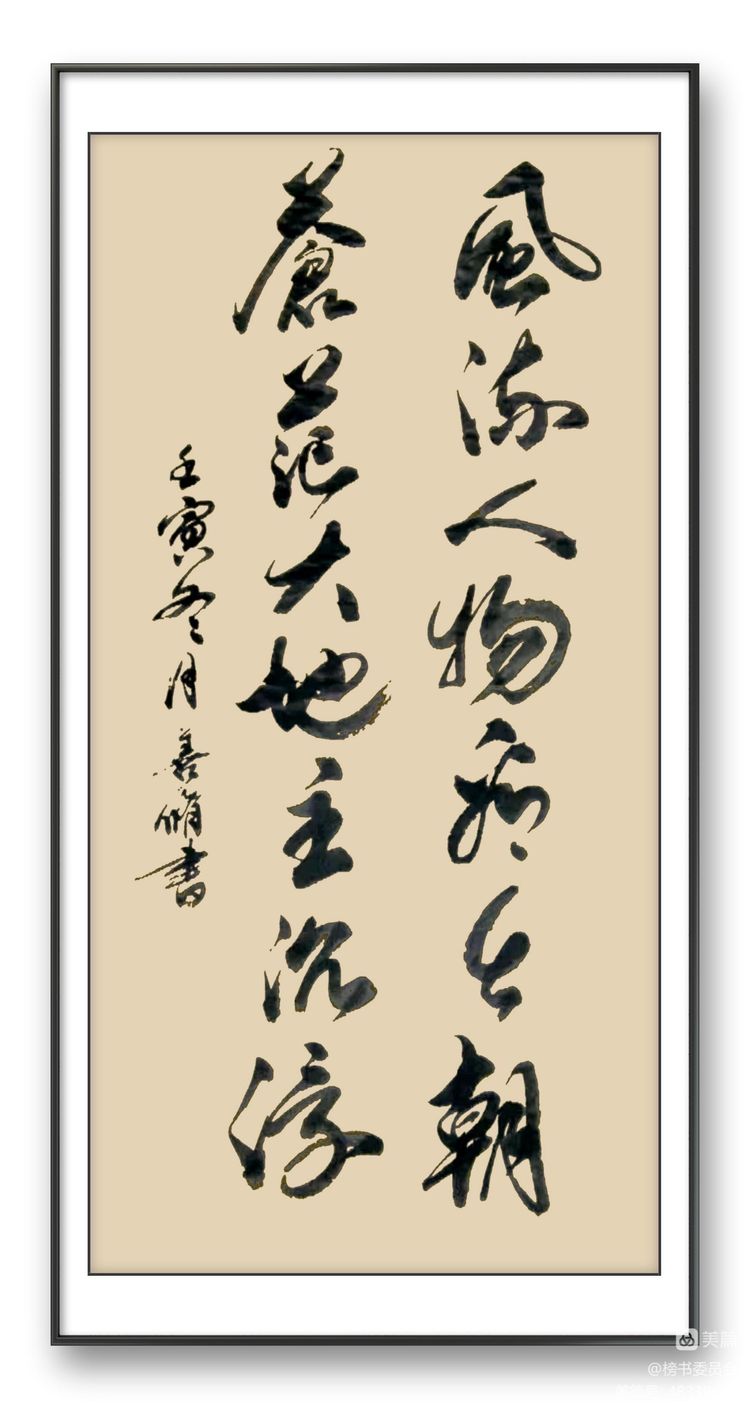 風流人物看今朝
蒼茫大地主沉浮
壬寅冬月善脩書
美篇
@榜书委员会